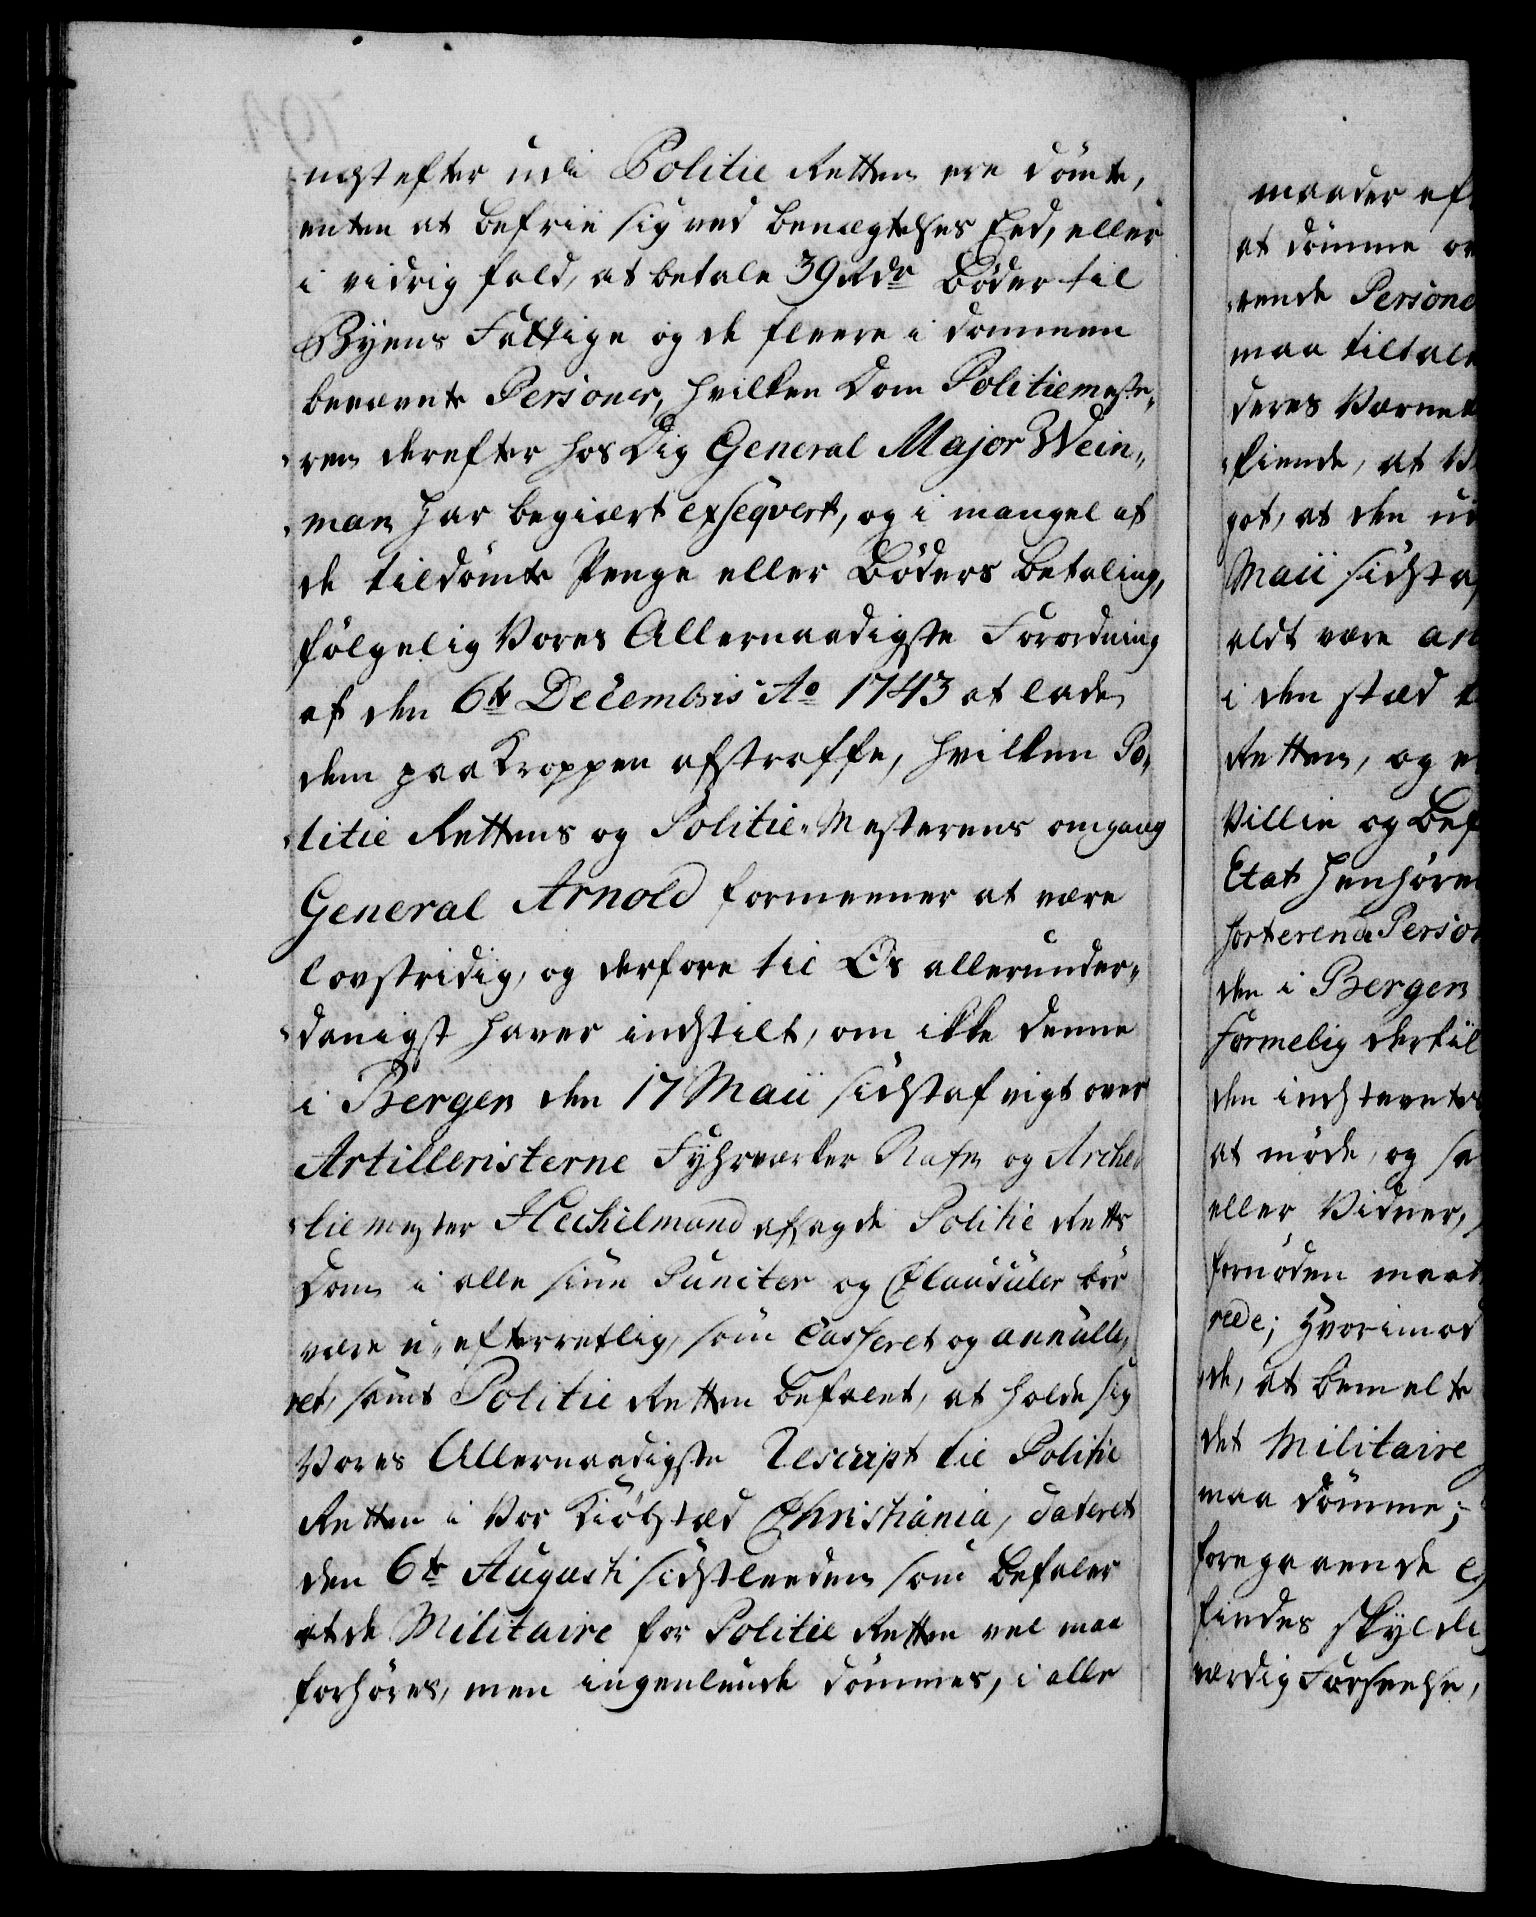 næst efter udi Politie Retten ere dömte,
enten at befrie sig ved benægtelses Eed, eller
i vidrig fald, at betale 39 Rdr Böder til
Byens Fattige og de fleere i Dommen
benævnte Personer, hvilken Dom Politiemeste-
ren derefter hos Dig General Major Wein-
man har begiert exseqvert, og i mangel af
de tildömte Penge eller Böders betaling,
fölgelig Vores Allernaadigste Forordning
af den 6te Decembris Ao 1743 at lade
dem paa Kroppen afstraffe, hvilken Po-
litie Rettens og Politie-Mesterens omgang
General Arnold formeener at være
lovstridig, og derfore til Os allerunder-
danigst haver indstilt, om ikke denne
i Bergen den 17 Maii sidstafvigt over
Artilleristerne Fyhrværker Rafn og Arche-
liemester Heckelmand afsagde Politie Retts
Dom i alle sine Puncter og Clausuler bör
være u-efterretlig, som Casseret og annulle-
ret, samt Politie Retten befalet, at holde sig
Vores Allernaadigste Rescript til Politie
Retten i Vor Kiöbstæd Christiania, dateret
den 6te Augusti sidstleeden som befaler
at de Militaire for Politie Retten vel maa
forhöres, men ingenlunde dömmes, i alle
maader ef
at dömme ov
rende Persone
maa tiltale
deres Værne
fiende, at
got, at den ud
Maii sidst af
aldt være an
i den stæd
Retten, og
Villie og Bef
Etat henhöre
sorterende Person
den i Bergen
formelig dertil
den indstevnte
at möde, og
eller Vidner,
fornöden maat
rede; Hvorimod
de, at bemelte
det Militaire
maa dömme;
foregaaende
findes skyldi
værdig Forseelse,